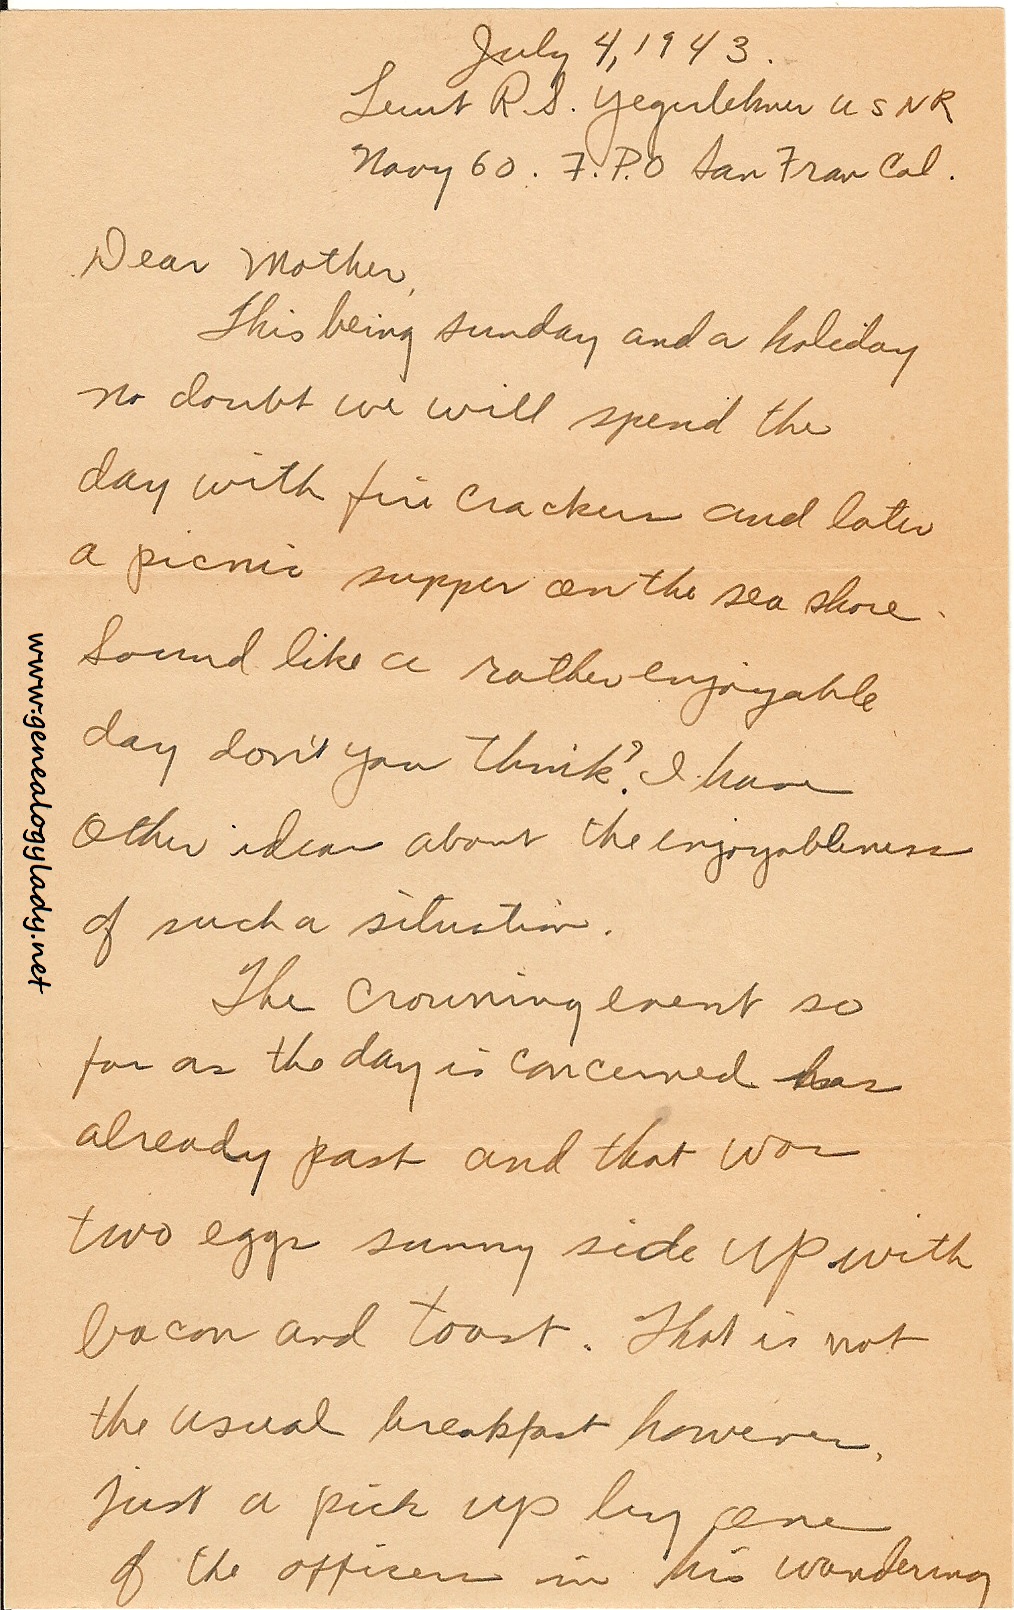 July 4, 1943.
Lieut R.S. Yegerlehner USNR
Navy 60. F.P.O San Fran Cal.
Dear Mother,
This being sunday and a holiday
no doubt we will spend the
day with fire crackers and later
a picnic supper on the sea shore.
Sound like a rather enjoyable
day don't you think? I have
other ideas about the enjoyableness
of such a situation.
The crowning event so
far as the day is concerned has
already past and that was
two eggs sunny side up with
bacon and toast. That is not
the usual breakfast however,
just a pick up by one
of the officers in his wandering
www.genealogylady.net